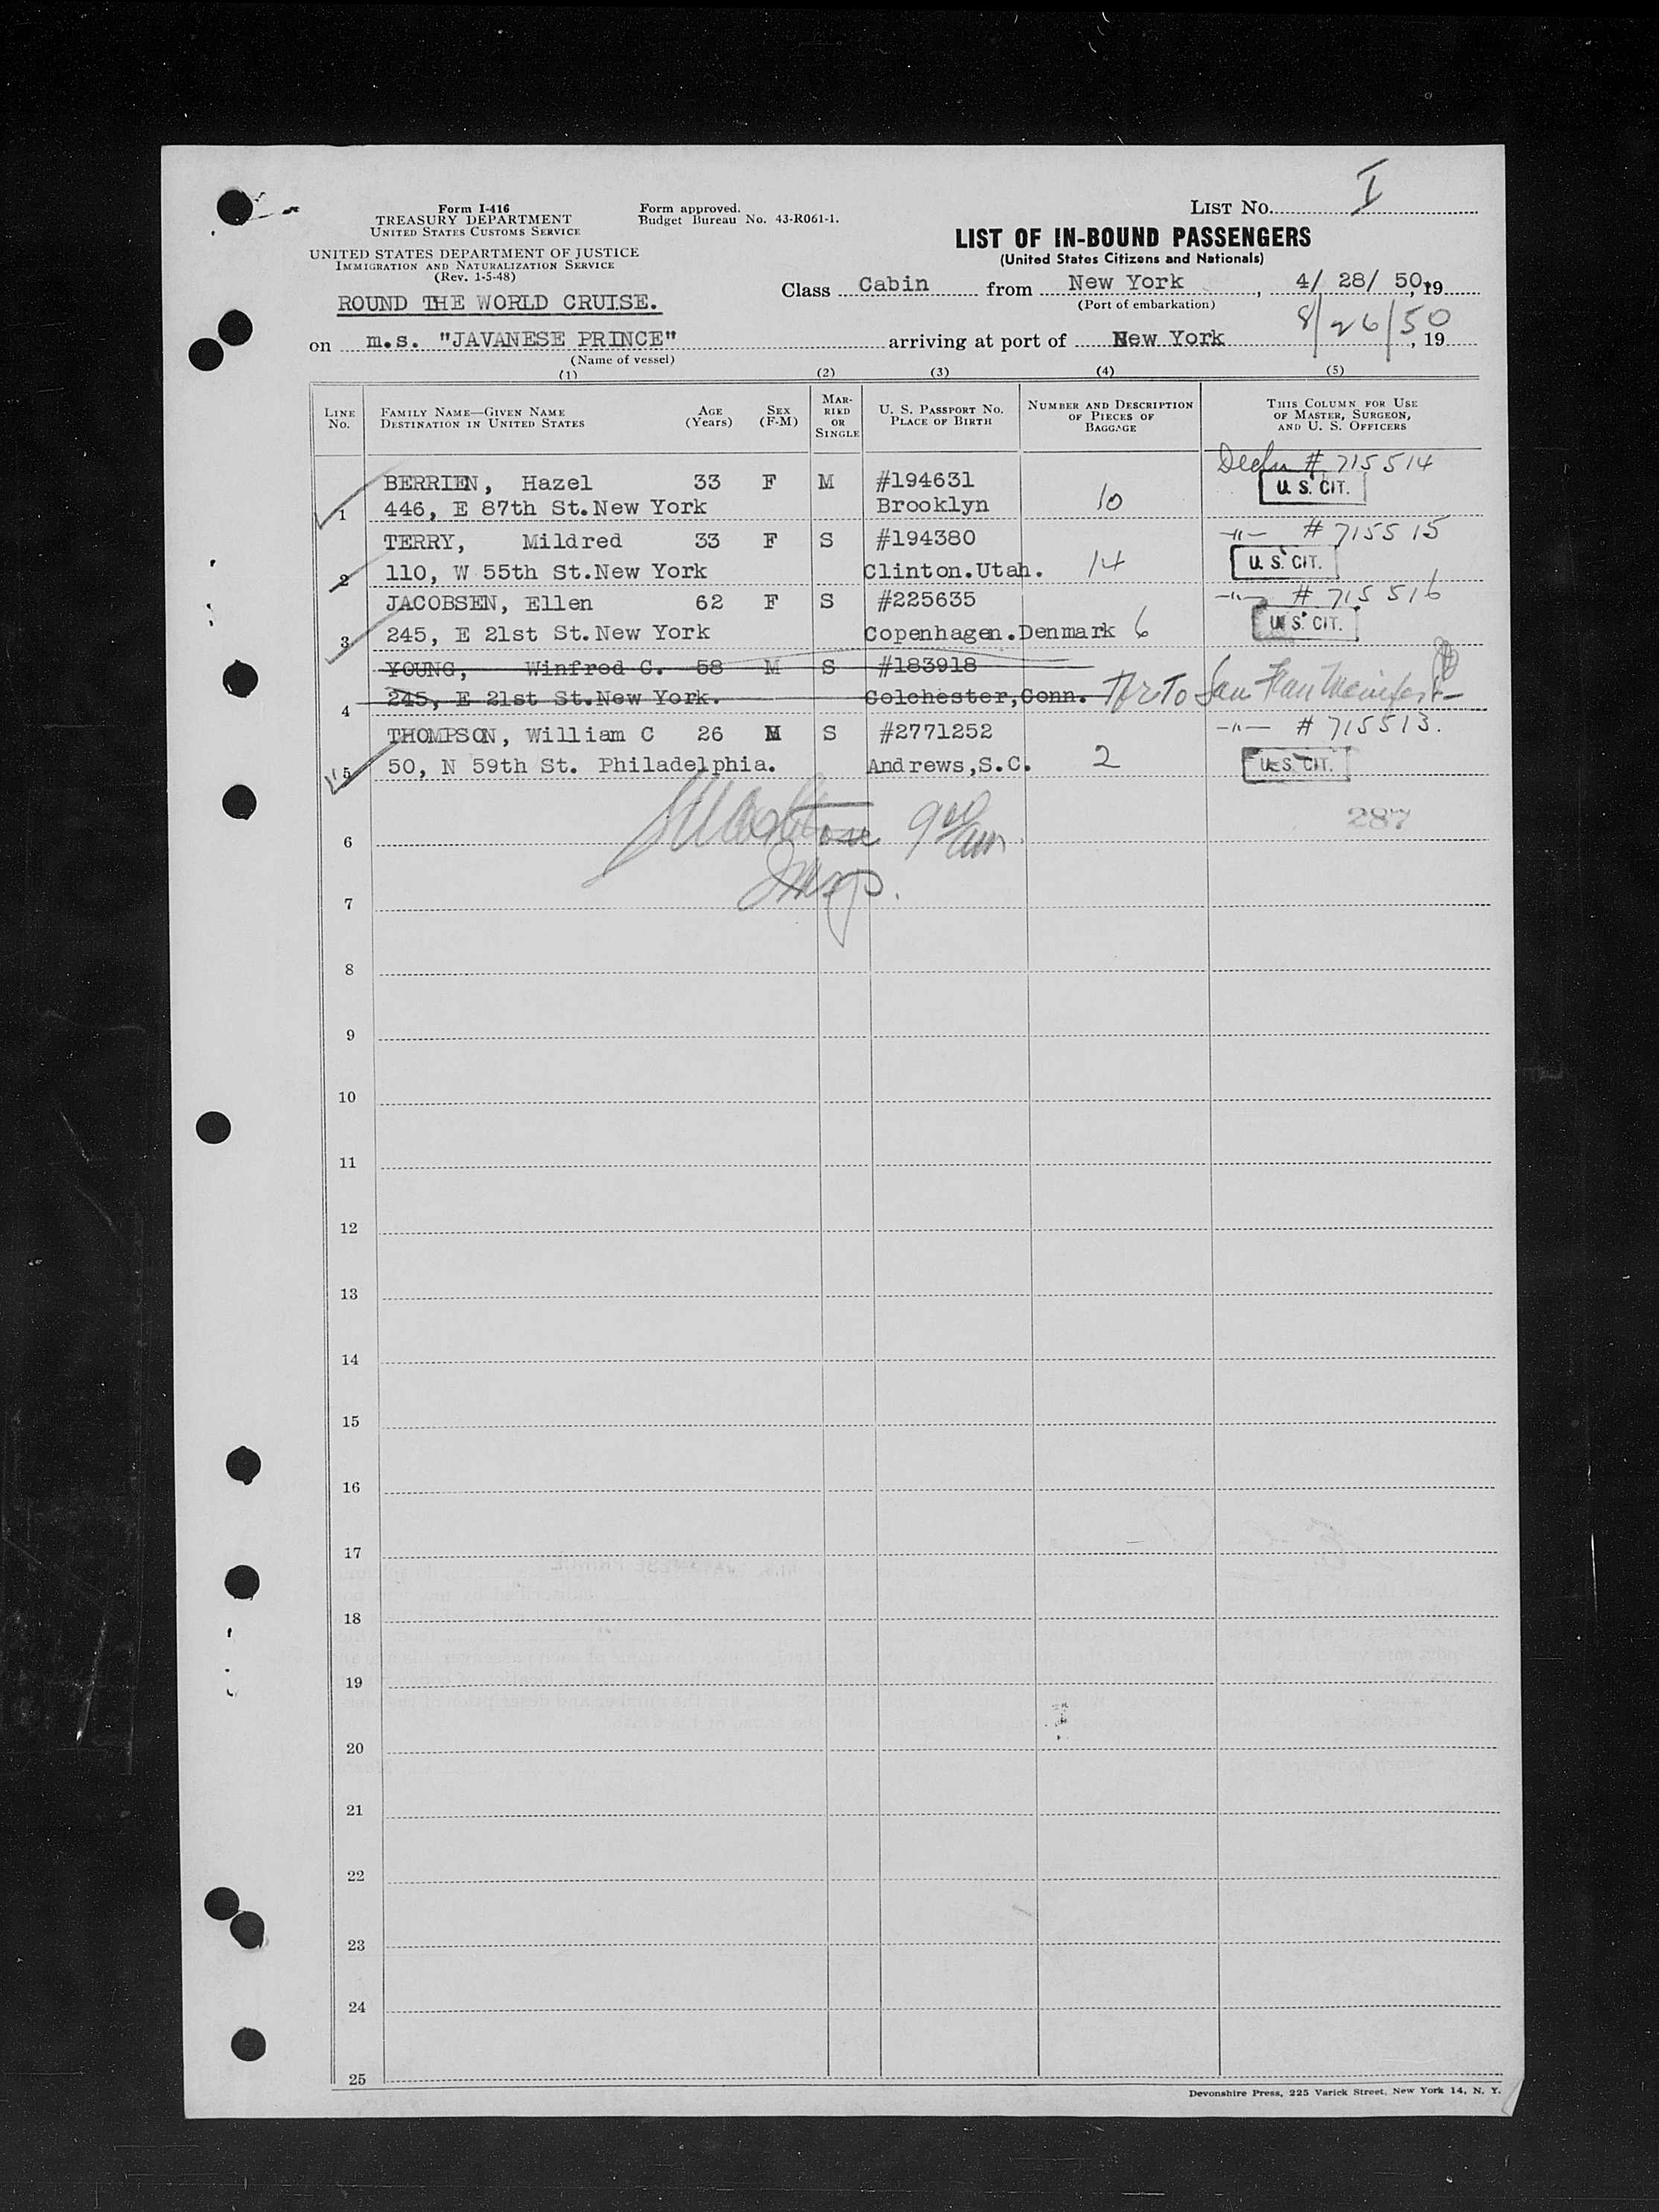 I
Form I-416
TREASURY DEPARTMENT
UNITED STATES CUSTOMS SERVICE
Form approved.
Budget Bureau No. 43-R061-1.
LIST No.
UNITED STATES DEPARTMENT OF JUSTICE
IMMIGRATION AND NATURALIZATION SERVICE
(Rev. 1-5-48)
LIST OF IN-BOUND PASSENGERS
(United States Citizens and Nationals)
ROUND THE WORLD CRUISE.
Class Cabin from New York, 4/ 28/ 50, 19
(Port of embarkation)
on m.s. "JAVANESE PRINCE" arriving at port of New York 8/26/50, 19
(Name of vessel)
(1) (2) (3) (4) (5)
LINE No. FAMILY NAME—GIVEN NAME DESTINATION IN UNITED STATES AGE (Years) SEX (F-M) MARRIED OR SINGLE U. S. PASSPORT No. PLACE OF BIRTH NUMBER AND DESCRIPTION OF PIECES OF BAGGAGE THIS COLUMN FOR USE OF MASTER, SURGEON, AND U. S. OFFICERS
# 715514
BERRIEN, Hazel 33 F M #194631 U. S. CIT.
1 446, E 87th St.New York Brooklyn 10
TERRY, Mildred 33 F S #194380 -"- # 715515
2 110, W 55th St.New York Clinton.Utah. 14 U. S. CIT.
JACOBSEN, Ellen 62 F S #225635 -"- # 715516
3 245, E 21st St.New York Copenhagen.Denmark 6 U. S. CIT.
YOUNG, Winfred C. 58 M S #183918
4 245, E 21st St.New York. Colchester,Conn. To San Fran Manifest
THOMPSON, William C 26 M S #2771252 -"- # 715513.
5 50, N 59th St. Philadelphia. Andrews,S.C. 2 U. S. CIT.
287
900 am
6
Insp.
7
8
9
10
11
12
13
14
15
16
17
18
19
20
21
22
23
24
25
Devonshire Press, 225 Varick Street, New York 14, N. Y.